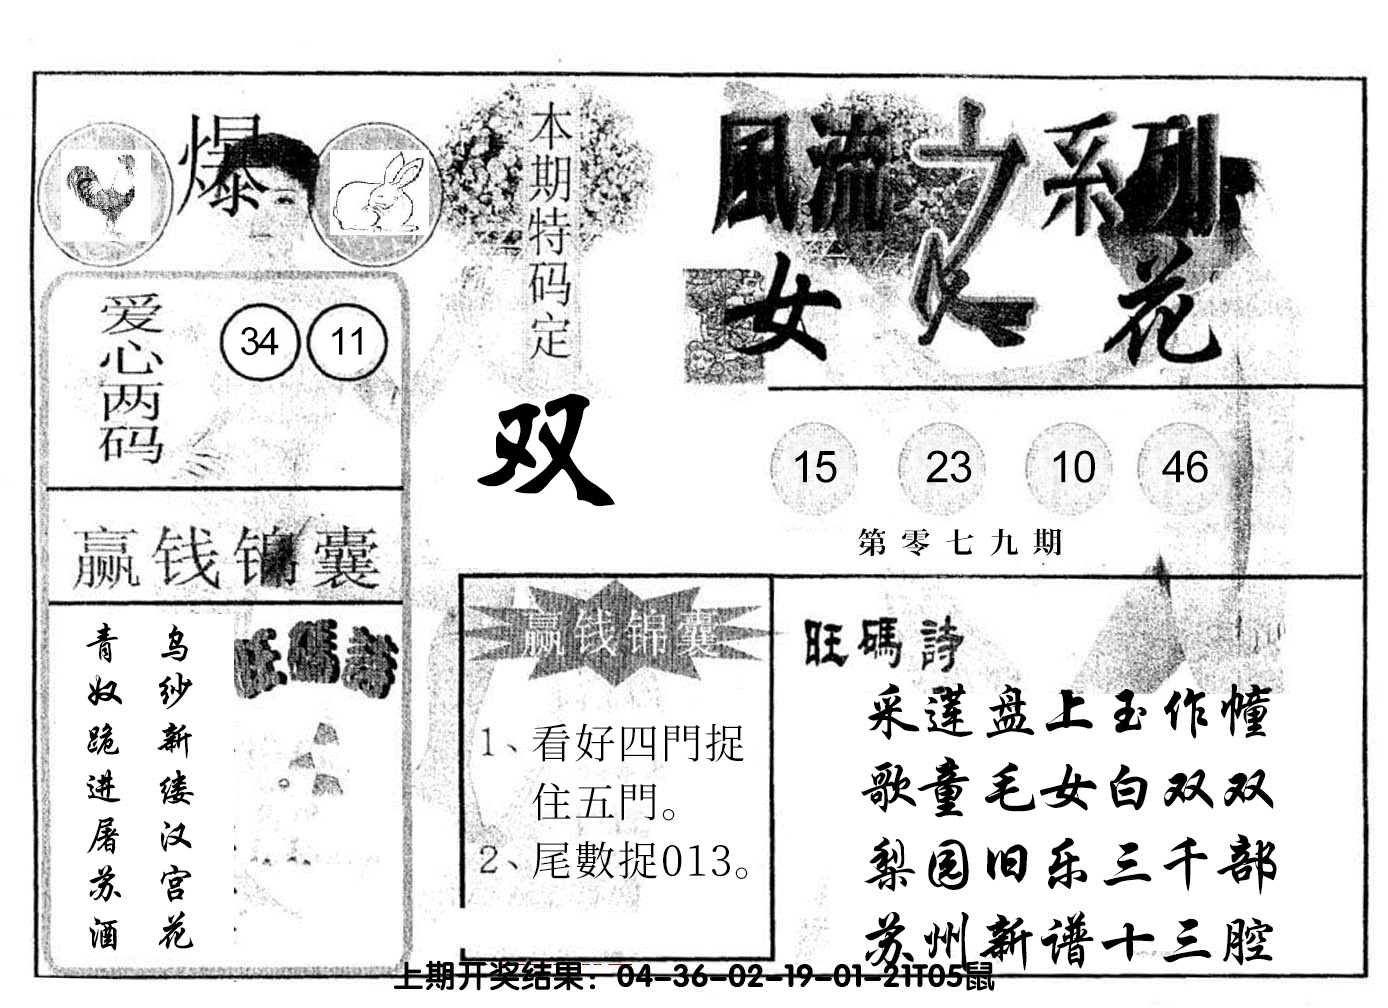 爆
本期特码定
双
風流之系列
女人花
爱心两码
34 11
赢钱锦囊
乌纱新缕汉宫花
青奴跪进屠苏酒
旺碼詩
15 23 10 46
第零七九期
赢钱锦囊
1、看好四門捉
住五門。
2、尾數捉013。
旺碼詩
采莲盘上玉作幢
歌童毛女白双双
梨园旧乐三千部
苏州新谱十三腔
上期开奖结果：04-36-02-19-01-21T05鼠